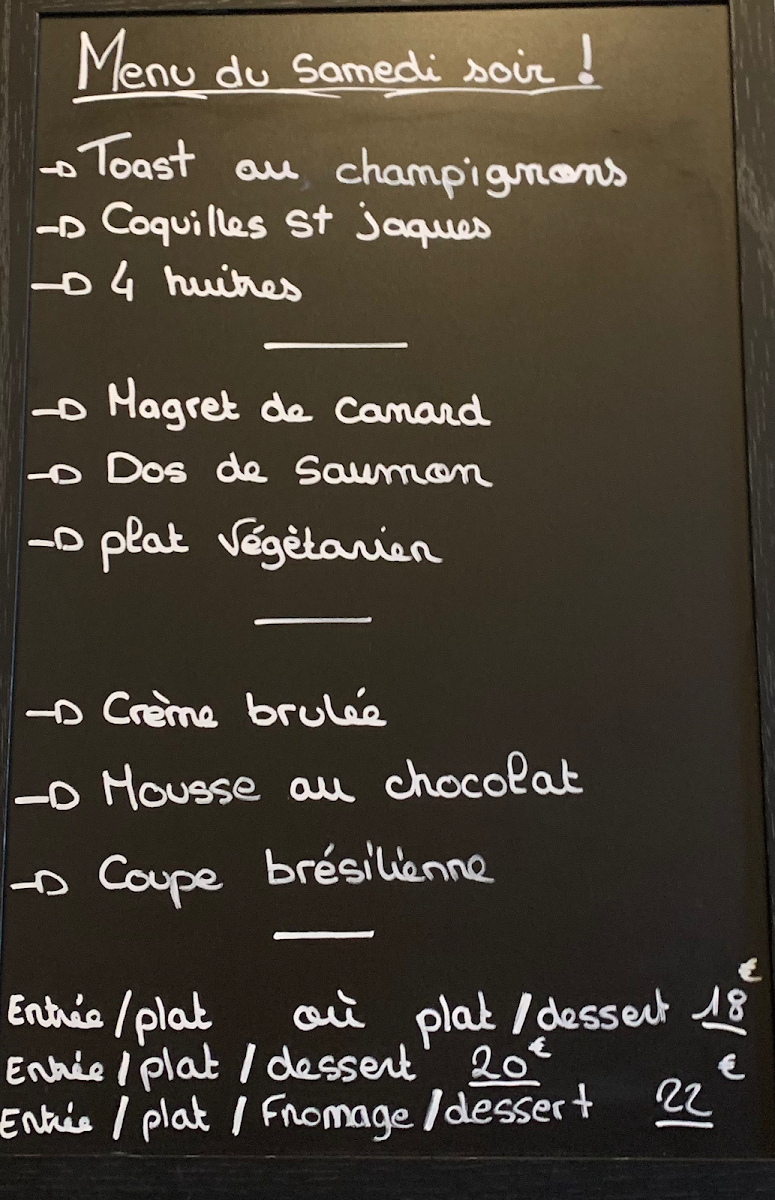 Menu du Samedi soir !
Toast au champignons
Coquilles St jaques
4 huitres
Magret de canard
Dos de Saumon
plat Végètarien
Crème brulée
Mousse au chocolat
Coupe brésilienne
Entrée / plat où plat / dessert 18€
Entrée / plat / dessert 20€
Entrée / plat / Fromage / dessert 22€